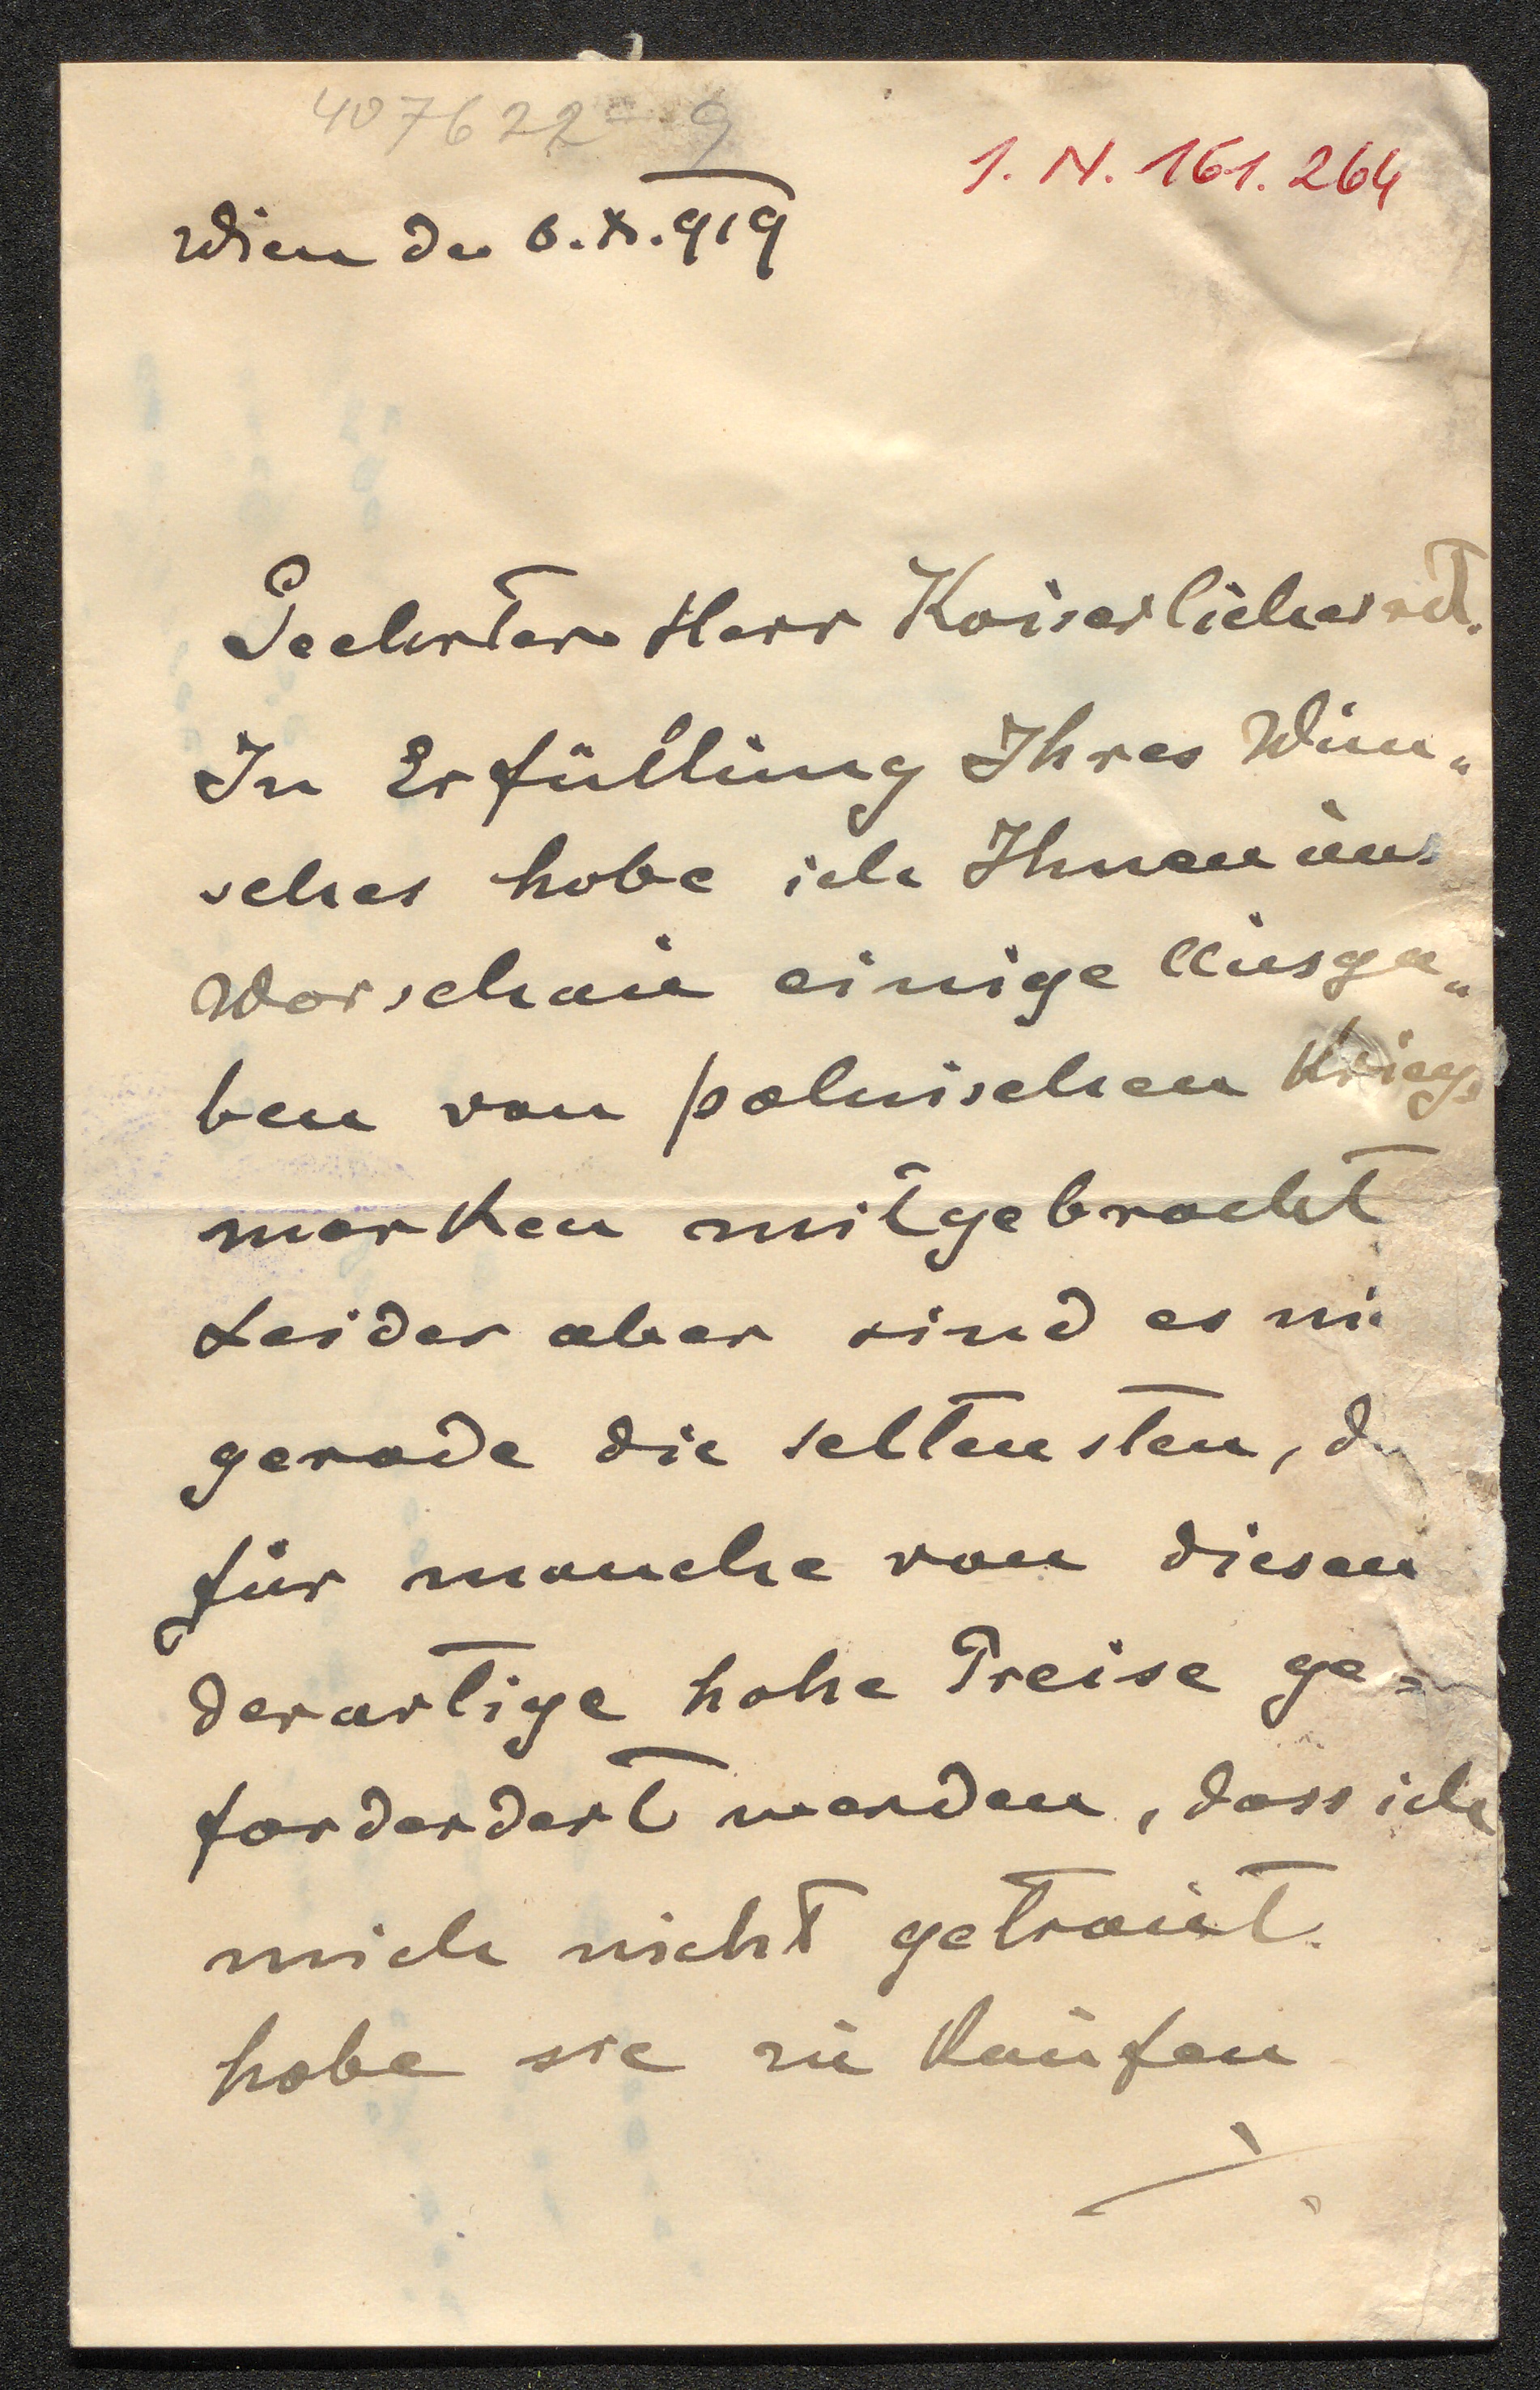 407622 = 9
I. N. 161.264
Wien den 6. X. 919
Geehrter Herr Kaiserlicher Rat.
In Erfüllung Ihres Wun„
sches habe ich Ihnen aus
Warschau einige Ausga„
ben von polnischen Kriegs
marken mitgebracht
Leider aber sind es ni
gerade die seltensten, d
für manche von diesen
derartige hohe Preise ge=
fordердert werden, dass ich
mich nicht getraut
habe sie zu kaufen